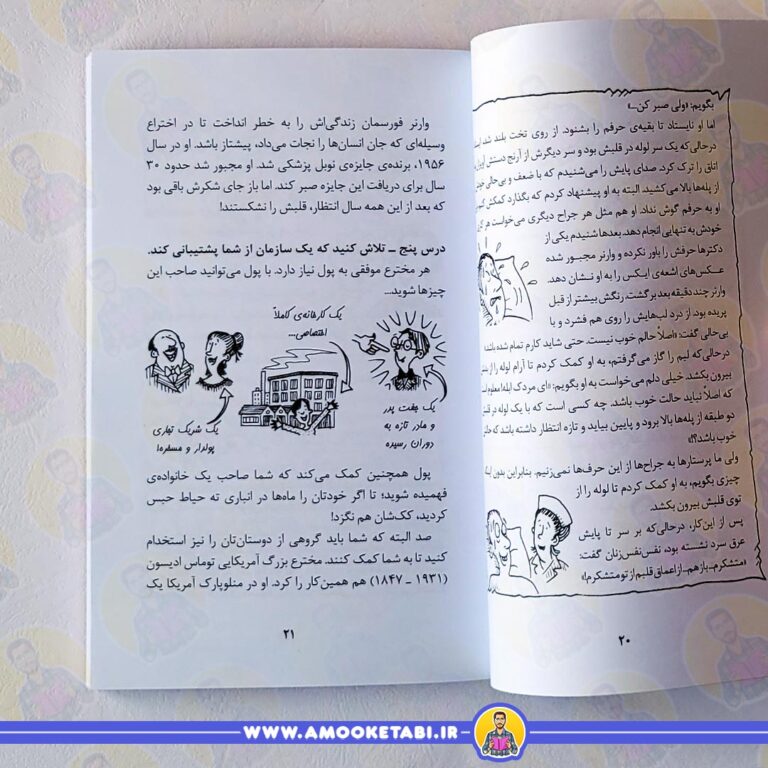 بگویم: «ولی صبر کن...»
اما او نایستاد تا بقیه‌ی حرفم را بشنود. از روی تخت بلند شد
درحالی‌که یک سر لوله در قلبش بود و سر دیگرش از آرنج دستش
اتاق را ترک کرد. صدای پایش را می‌شنیدم که با ضعف و بی‌حالی
از پله‌ها بالا می‌کشید. البته به او پیشنهاد کردم که بگذارد کمکش
او به حرفم گوش نداد. او هم مثل هر جراح دیگری می‌خواست هر
خودش به تنهایی انجام دهد. بعدها شنیدم یکی از
دکترها حرفش را باور نکرده و وارنر مجبور شده
عکس‌های اشعه‌ی ایکس را به او نشان دهد.
وارنر چند دقیقه بعد برگشت، رنگش بیشتر از قبل
پریده بود. از درد لب‌هایش را روی هم فشرد و با
بی‌حالی گفت: «اصلاً حالم خوب نیست. حتی شاید کارم تمام شده باشد
درحالی‌که لبم را گاز می‌گرفتم، به او کمک کردم تا آرام لوله را از
بیرون بکشد. خیلی دلم می‌خواست به او بگویم: «ای مردک ابله! معلوم
که اصلاً نباید حالت خوب باشد. چه کسی است که با یک لوله در
دو طبقه از پله‌ها بالا برود و پایین بیاید و تازه انتظار داشته باشد که
خوب باشد؟!»
ولی ما پرستارها به جراح‌ها از این حرف‌ها نمی‌زنیم. بنابراین بدون
چیزی بگویم، به او کمک کردم تا لوله را از
توی قلبش بیرون بکشد.
پس از این‌کار، درحالی‌که بر سر تا پایش
عرق سرد نشسته بود، نفس‌نفس‌زنان گفت:
«متشکرم... باز هم... از اعماق قلبم از تو متشکرم!»
۲۰
وارنر فورسمان زندگی‌اش را به خطر انداخت تا در اختراع
وسیله‌ای که جان انسان‌ها را نجات می‌داد، پیشتاز باشد. او در سال
۱۹۵۶، برنده‌ی جایزه‌ی نوبل پزشکی شد. او مجبور شد حدود ۳۰
سال برای دریافت این جایزه صبر کند. اما باز جای شکرش باقی بود
که بعد از این همه سال انتظار، قلبش را نشکستند!
درس پنج ـ تلاش کنید که یک سازمان از شما پشتیبانی کند.
هر مخترع موفقی به پول نیاز دارد. با پول می‌توانید صاحب این
چیزها شوید...
یک جفت پدر
و مادر تازه به
دوران رسیده
یک کارخانه‌ی کاملاً
اختصاصی...
یک شریک تجاری
پولدار و مسخره!
پول همچنین کمک می‌کند که شما صاحب یک خانواده‌ی
فهمیده شوید؛ تا اگر خودتان را ماه‌ها در انباری ته حیاط حبس
کردید، کک‌شان هم نگزد!
صد البته که شما باید گروهی از دوستان‌تان را نیز استخدام
کنید تا به شما کمک کنند. مخترع بزرگ آمریکایی توماس ادیسون
(۱۹۳۱ ـ ۱۸۴۷) هم همین‌کار را کرد. او در منلوپارک آمریکا یک
۲۱
WWW.AMOOKETABI.IR